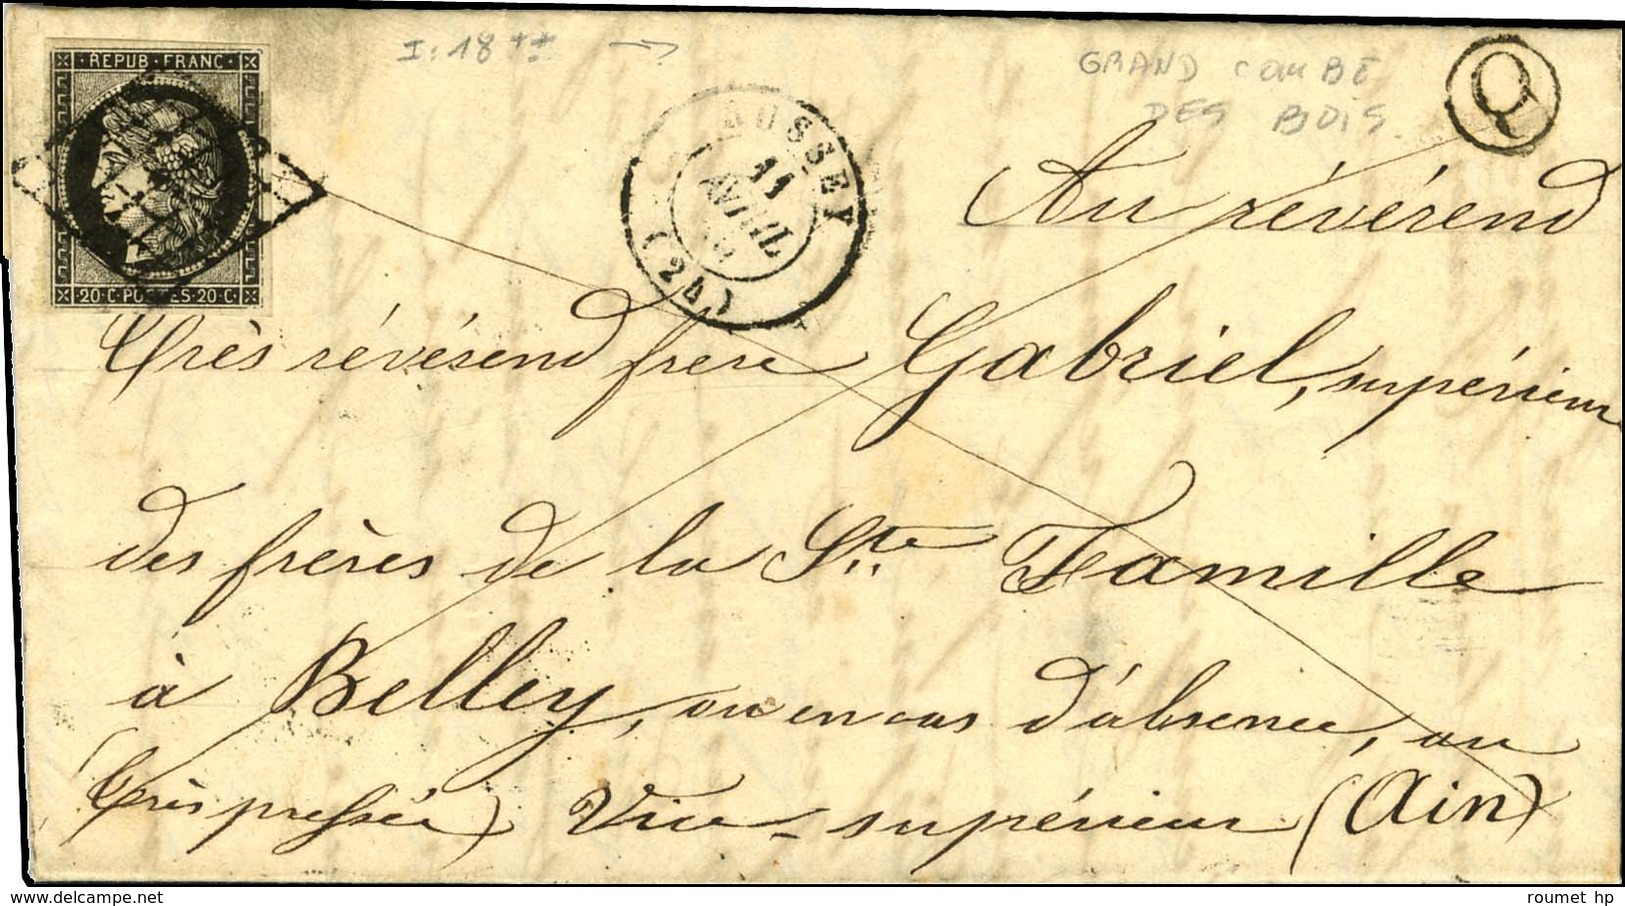 REPUB · FRANC
20 · C · POSTES · 20 · C
I : 18 ++ →
GRAND COMBE
DES BOIS.
Q
RUSSEY
11
AVRIL
(24)
Au révérend
Très révérend frère Gabriel, supérieur
des frères de la Ste Famille
à Belley, ou en cas d'absence, au
(très pressée) Vice-supérieur (Ain)
roumet hp